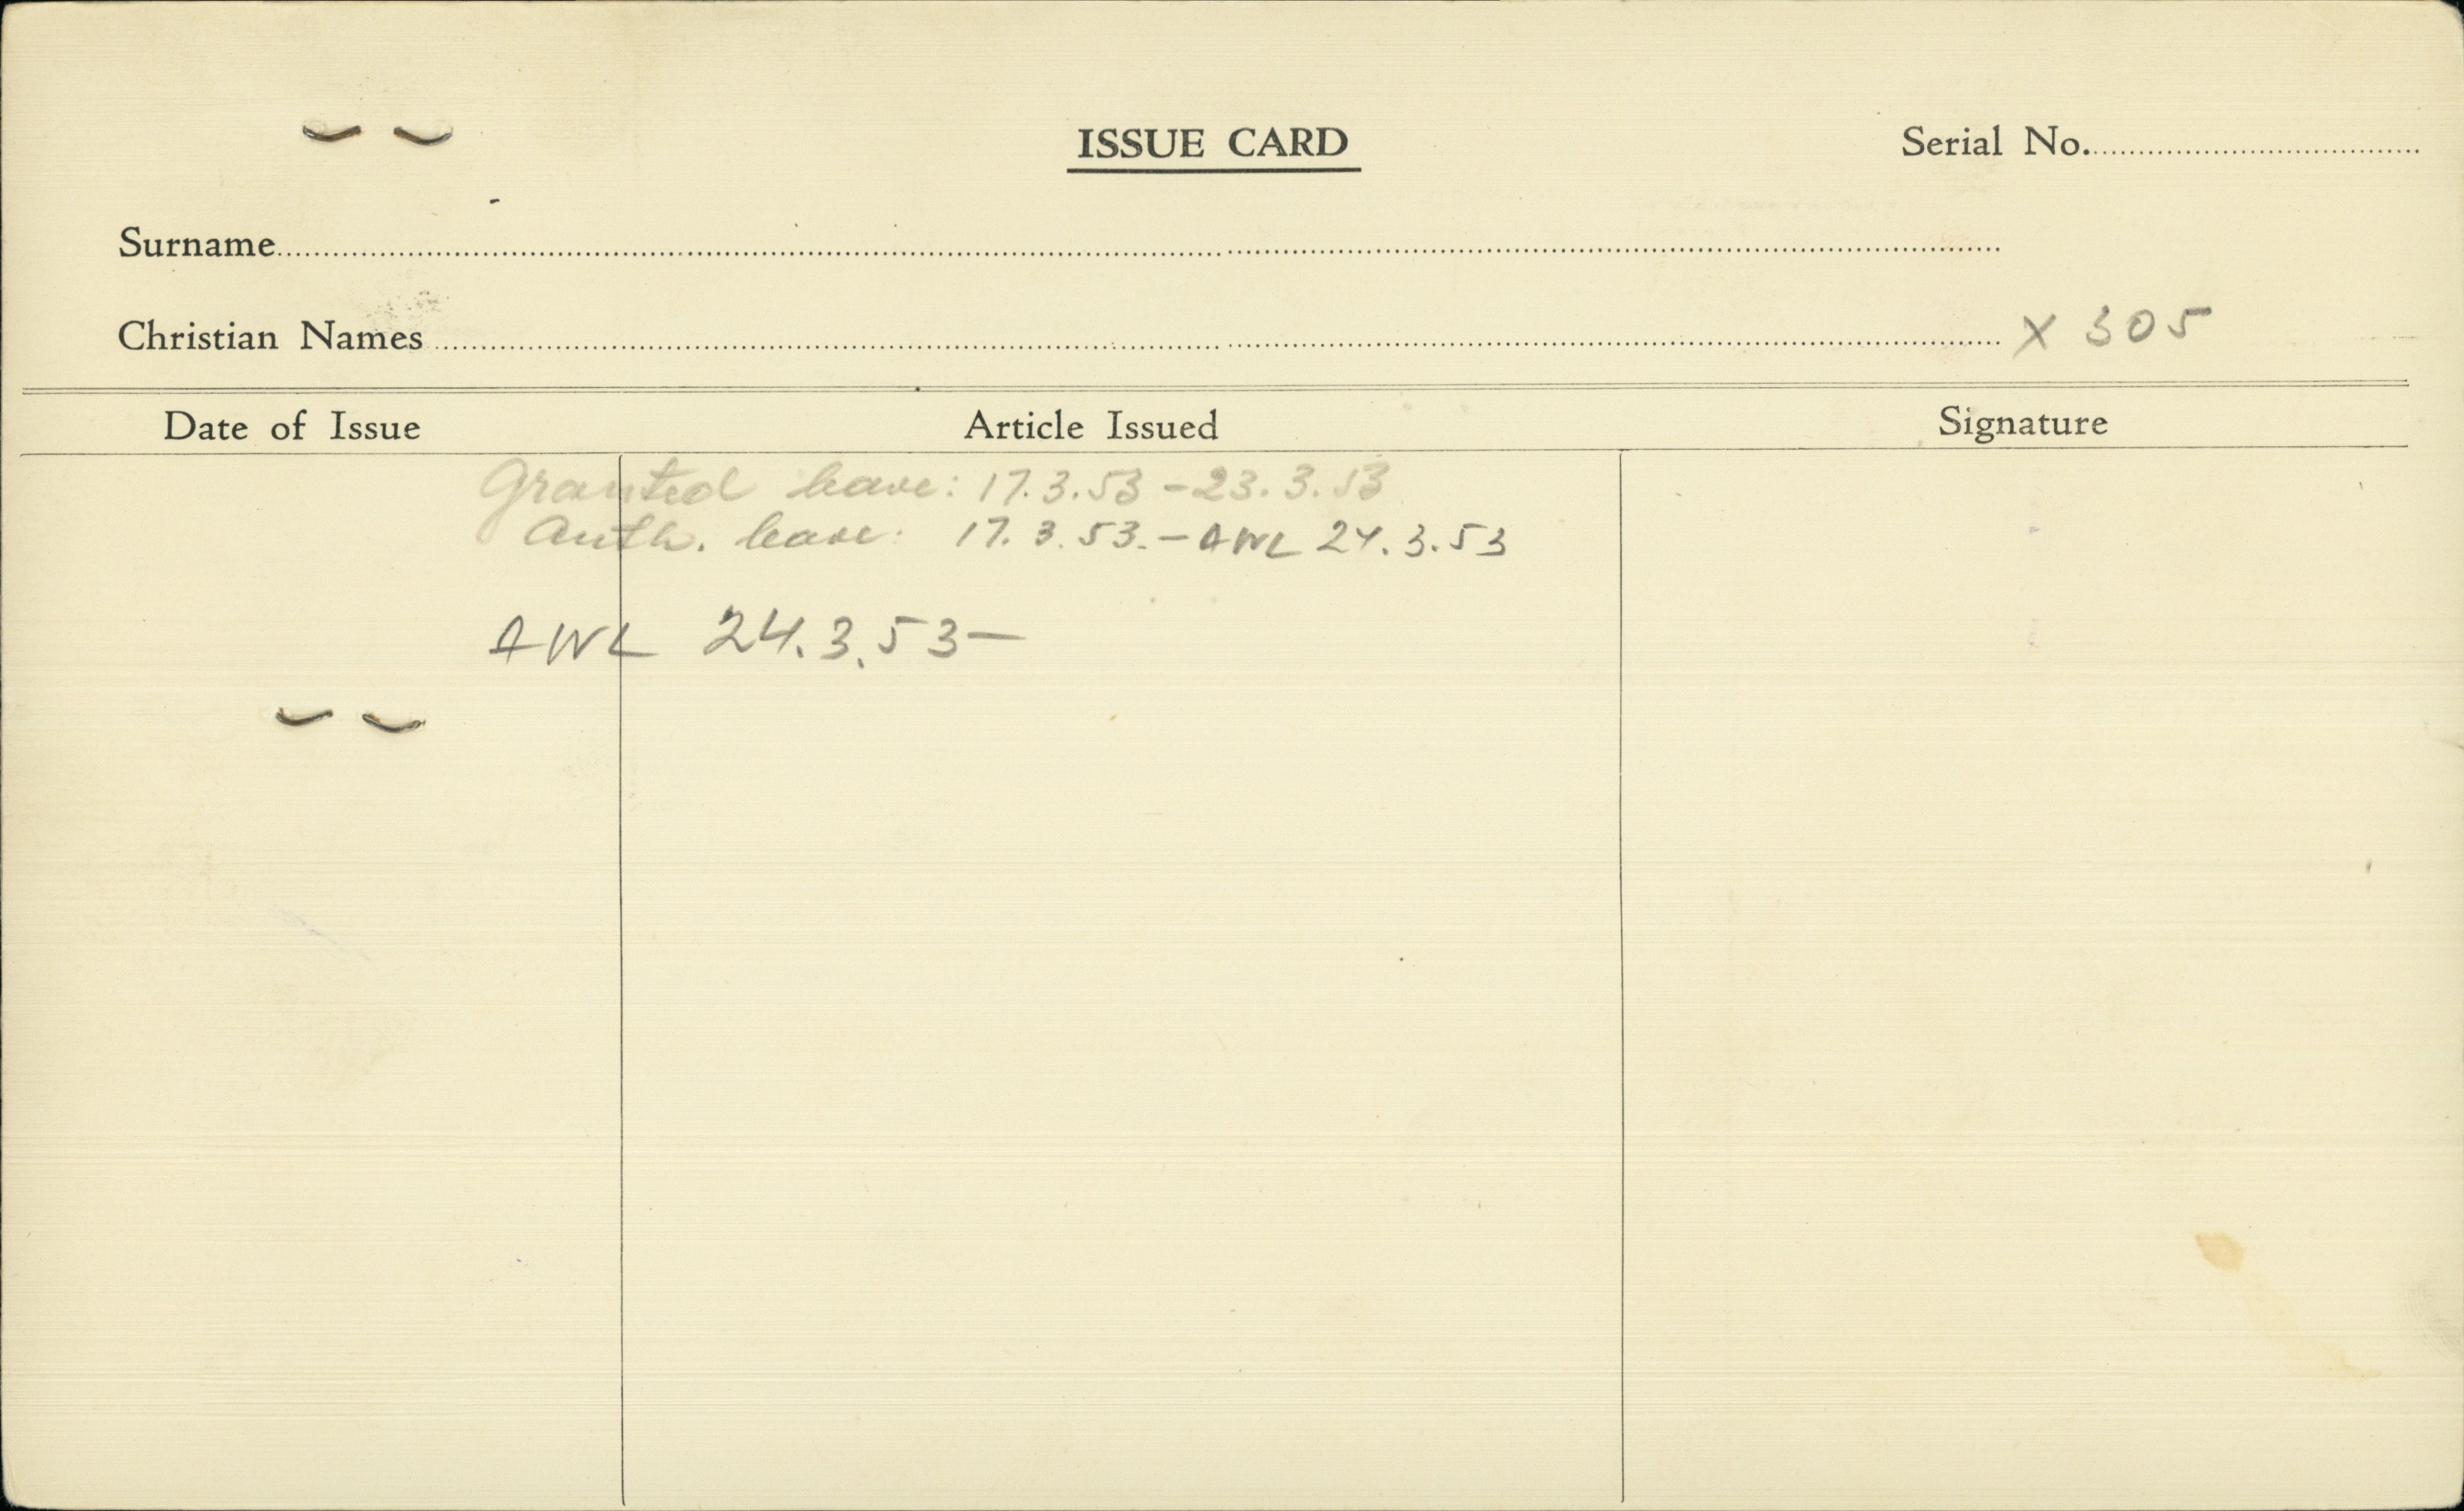 ISSUE CARD
Serial No.
Surname
Christian Names X 305
Date of Issue Article Issued Signature
Granted leave: 17.3.53 - 23.3.53
Auth. leave: 17.3.53. - AWL 24.3.53
AWL 24.3.53 -